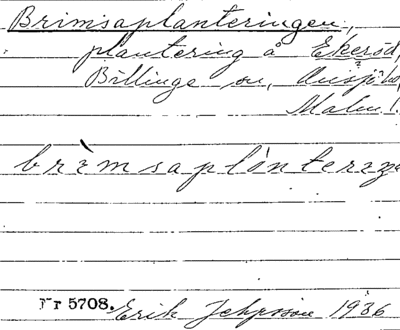 Brimsaplanteringen,
plantering å Ekeröd,
Billinge sn,
Malm. l.
brìmsaplánterɪŋ
Nr 5708. Erik Jeppsson 1936